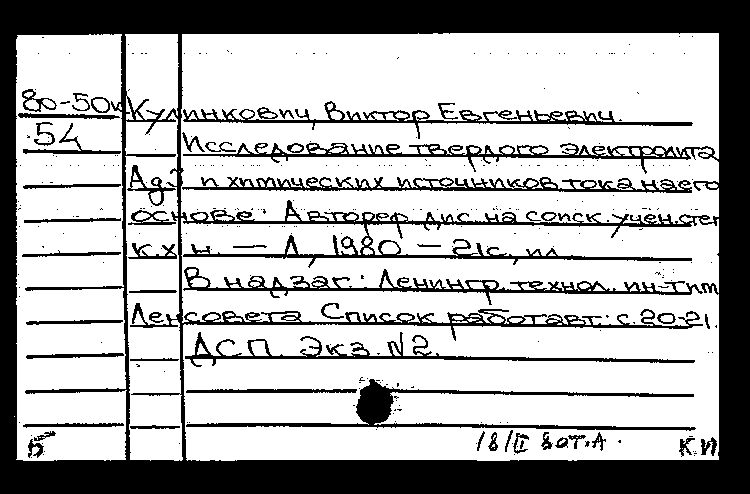 80-50к Кулинкович, Виктор Евгеньевич.
54 Исследование твердого электролита
AgJ и химических источников тока на его
основе: Автореф. дис. на соиск. учен. степ
к.х.н. — Л., 1980 — 21с., ил
В надзаг.: Ленингр. технол. ин-т им
Ленсовета Список работ авт: с. 20-21.
ДСП. Экз. №2.
18/II вот.А.
Б К.И